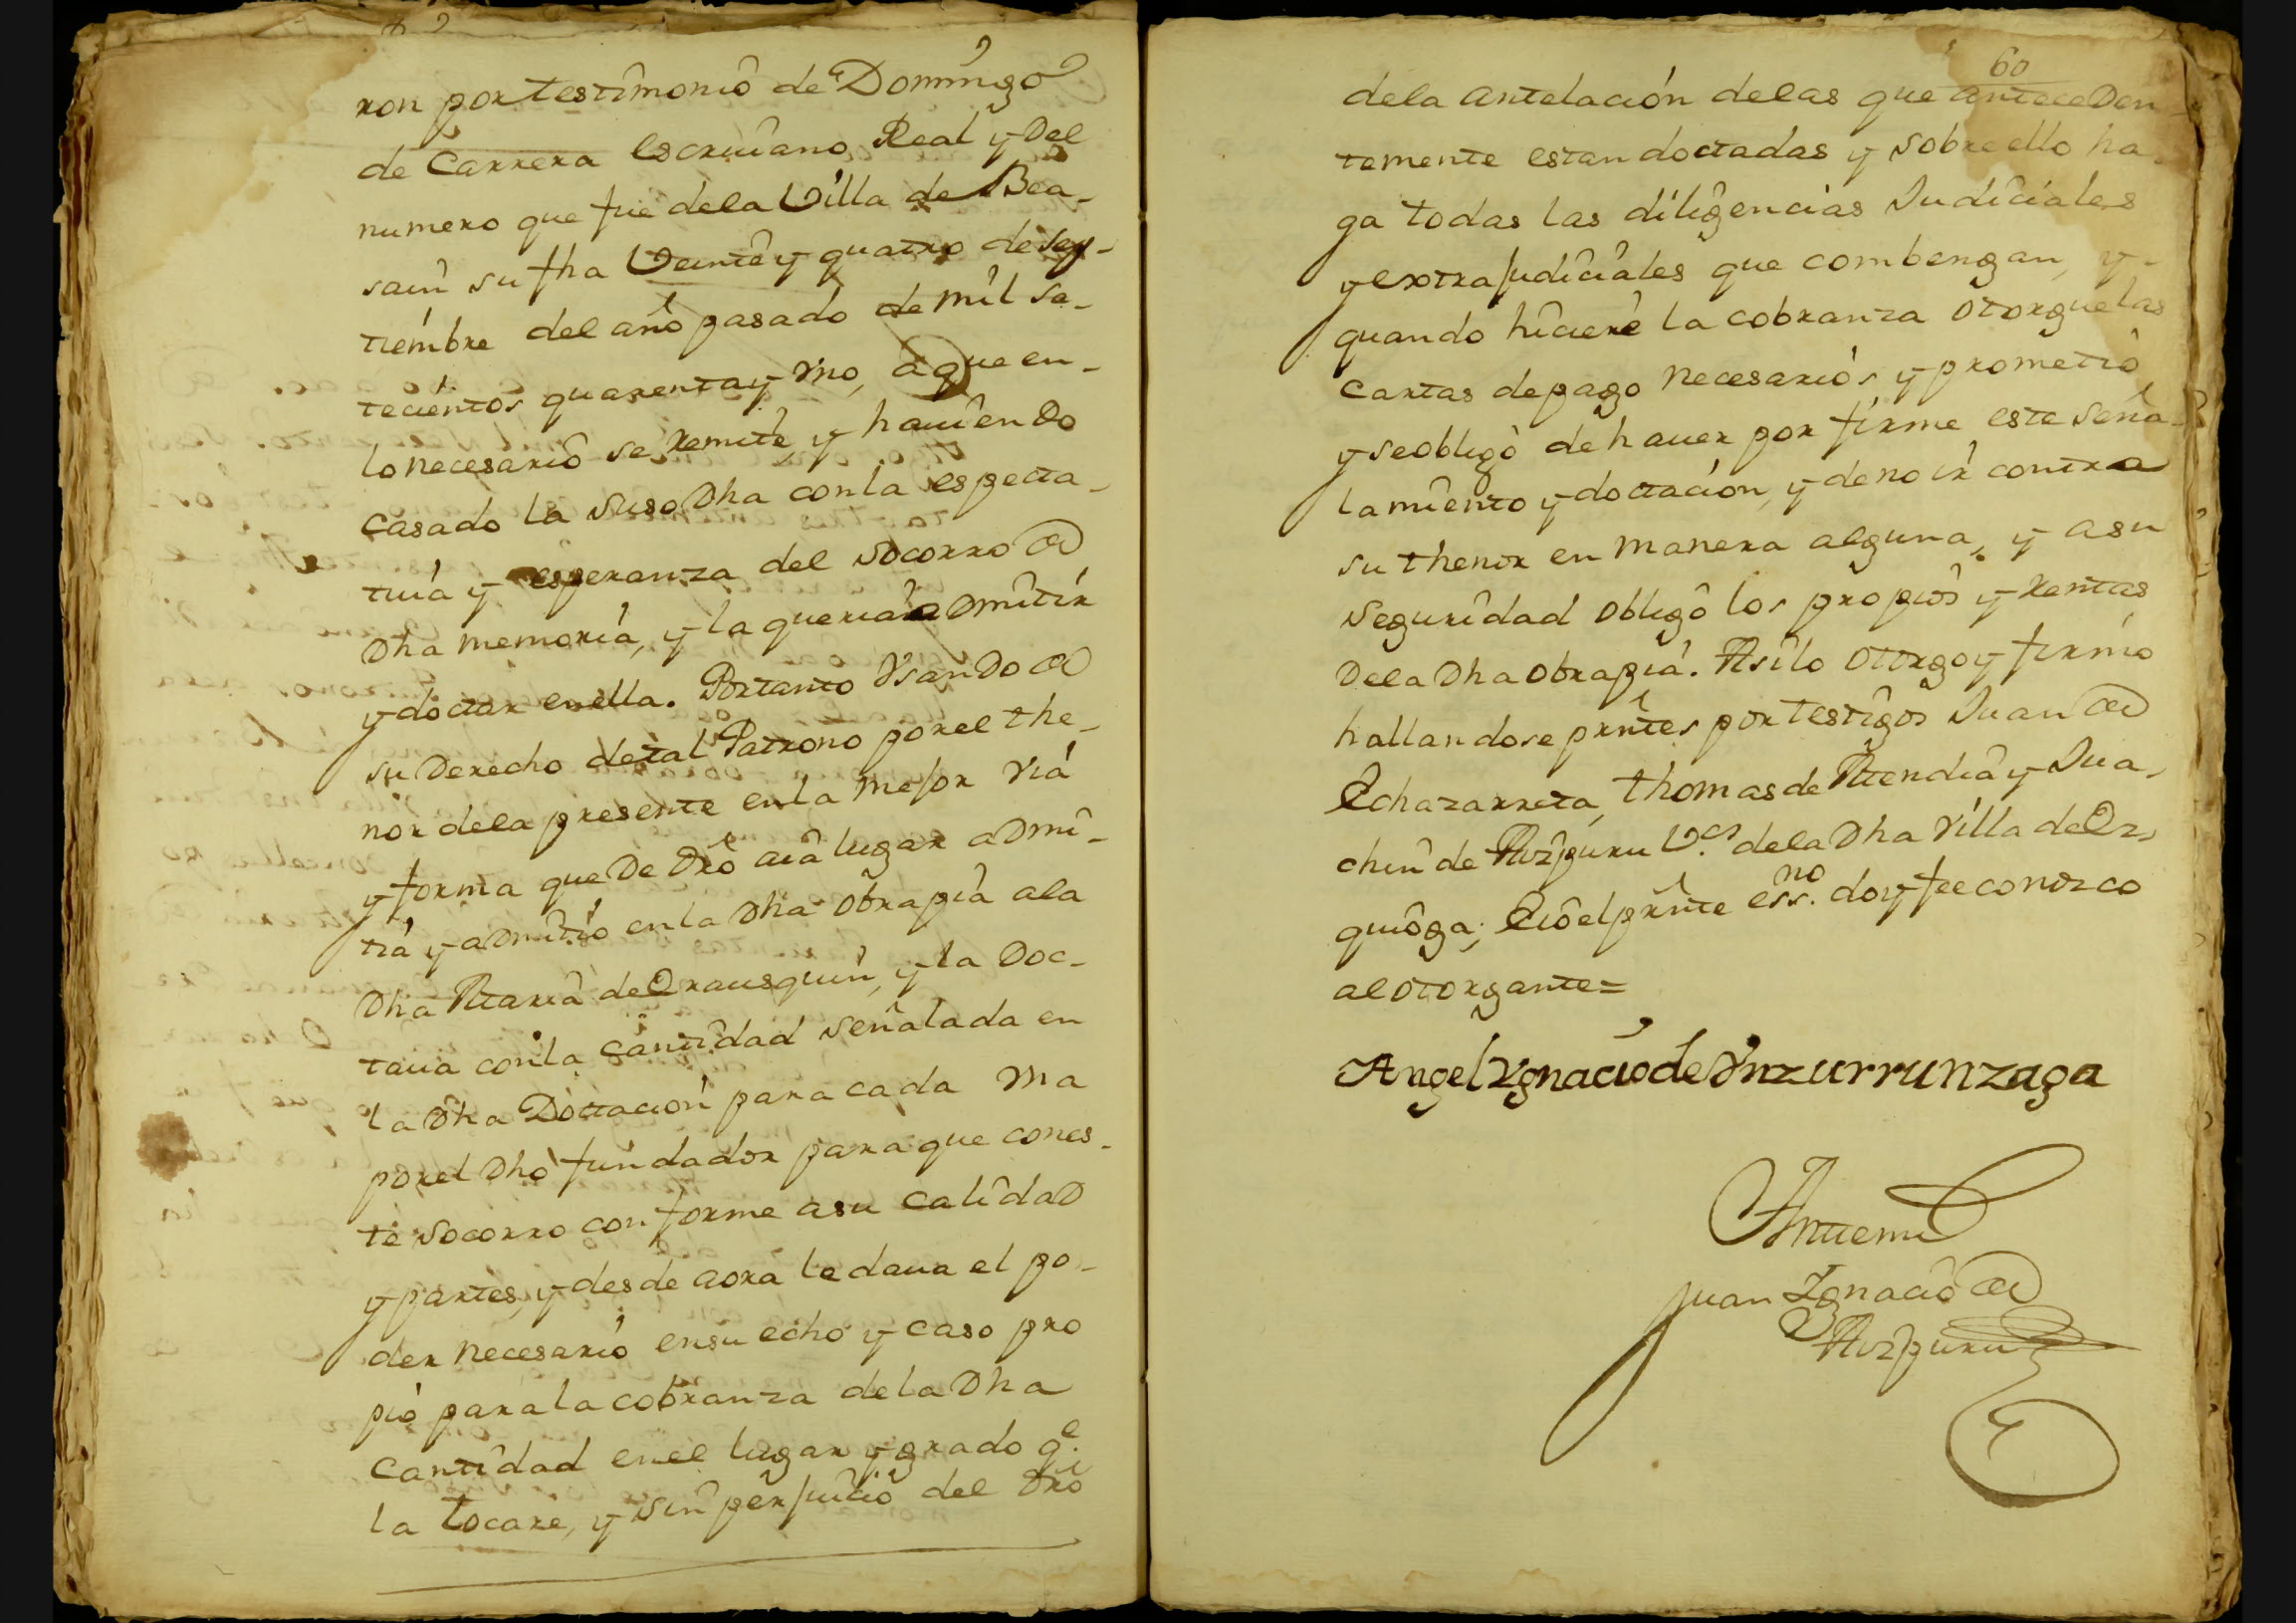 ron por testimonio de Domingo
de Carrera escriuano Real y del
numero que fue dela Villa de Bea-
sain su fha Veinte y quatro de Sep-
tiembre del año pasado de mil se-
tecientos quarenta y Vno, a que en-
lo necesario se remite, y hauiendo
casado la suso Dha con la especta-
tiua y esperanza del socorro de
Dha memoria, y la queria admitir
y doctar en ella. Portanto Vsando de
su Derecho de tal Patrono por el the-
nor dela presente en la mejor Via
y forma que de Dro aia lugar admi-
tia y admitio en la Dha obra pia ala
Dha Maria de Orausquin, y la Doc-
taua con la cantidad señalada en
la Dha Doctacion para cada Vna
por el Dho fundador para que con es-
te socorro conforme asu calidad
y partes, y desde aora le daua el po-
der necesario en su echo y caso pro
pio para la cobranza de la Dha
cantidad en el lugar y grado qe.
la tocare, y sin perjuicio del Dro
60
dela antelación delas que anteceden
temente estan doctadas y sobre ello ha-
ga todas las diligencias Judiciales
y extrajudiciales que combengan, y-
quando hiciere la cobranza otorgue las
cartas de pago necesarios y prometio
y se obligò de hauer por firme este seña-
lamiento y doctación, y de no ir contra
su thenor en manera alguna, y a su
seguridad obligò los propios y rentas
Dela Dha obra pia. Asilo otorgo y firmo
hallandose prntes por testigos Juan de
Echazarreta, thomas de Mendia y Jua-
chin de Aizpuru Vos. dela Dha Villa de Ez-
quioga; E io el prnte essno. doy fee conozco
al otorgante=
Angel Ygnacio de Ynzurrunzaga
Antemi
Juan Ignacio de
Aizpuru